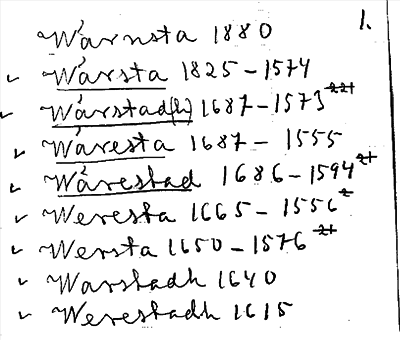 1.
Wårnsta 1880
✓ Wårsta 1825–1574
✓ Wårstad(h) 1687–1573
✓ Wåresta 1687–1555
✓ Wårestad 1686–1594
✓ Weresta 1665–1556
✓ Wersta 1650–1576
✓ Warstadh 1640
✓ Werestadh 1615